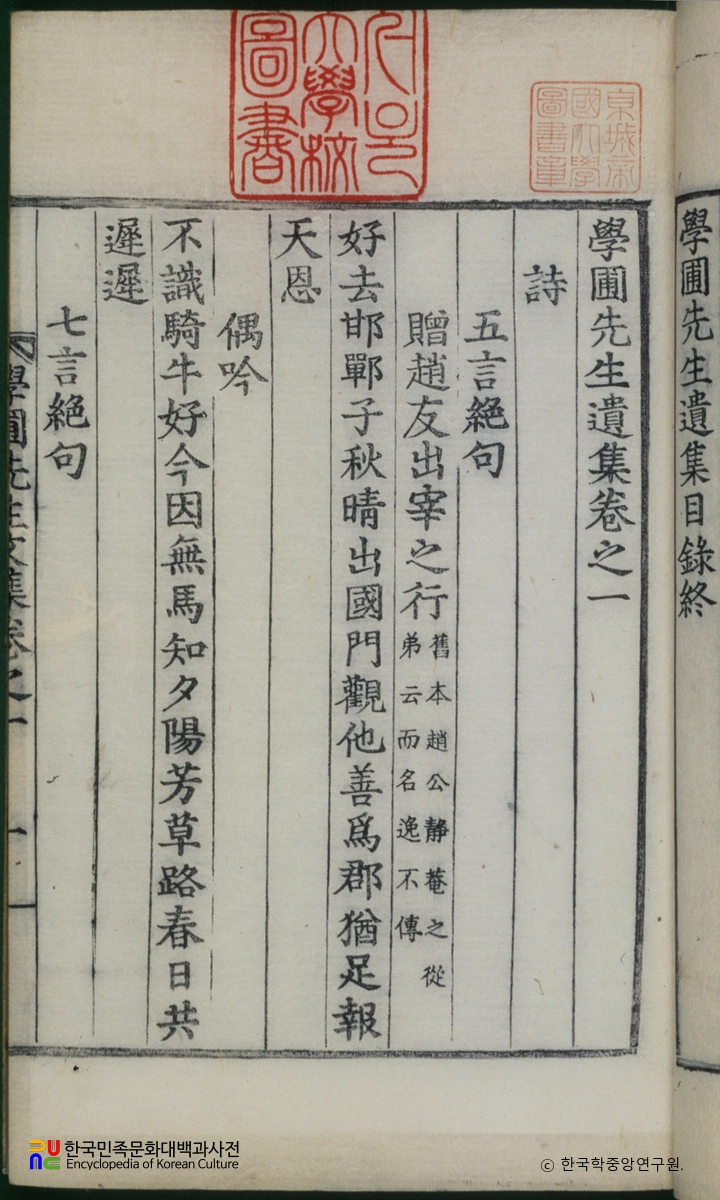 學圃先生遺集目錄終
學圃先生遺集卷之一
詩
五言絕句
贈趙友出宰之行 舊本趙公靜菴之從弟云而名逸不傳
好去邯鄲子秋晴出國門觀他善爲郡猶足報
天恩
偶吟
不識騎牛好今因無馬知夕陽芳草路春日共
遲遲
七言絕句
學圃先生文集卷之一 一
大學校
圖書
京城帝
國大學
圖書章
한국민족문화대백과사전
Encyclopedia of Korean Culture
ⓒ 한국학중앙연구원.